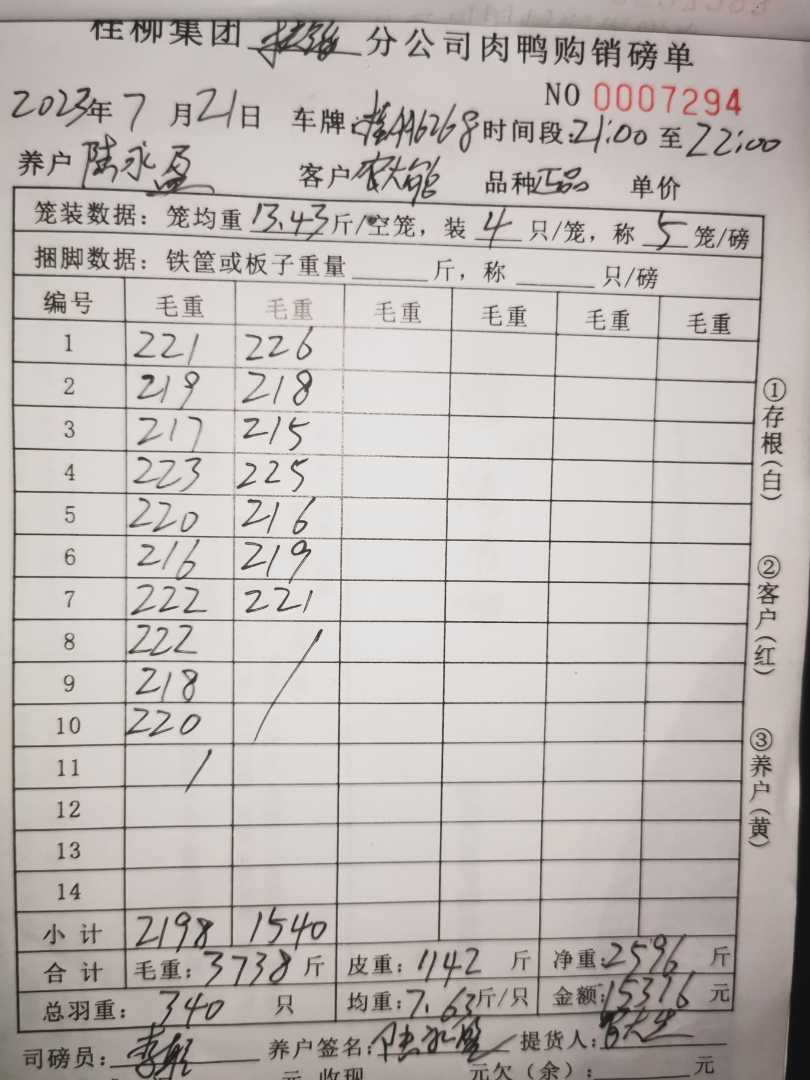 桂柳集团 分公司肉鸭购销磅单
NO 0007294
2023年7月21日 车牌:桂AA6268 时间段:21:00至22:00
养户 陆永盈 客户 品种 正品 单价
笼装数据: 笼均重 13.43 斤/空笼, 装 4 只/笼, 称 5 笼/磅
捆脚数据: 铁筐或板子重量 斤, 称 只/磅
编号 毛重 毛重 毛重 毛重 毛重 毛重
1 221 226
2 219 218
3 217 215
4 223 225
5 220 216
6 216 219
7 222 221
8 222
9 218
10 220
11
12
13
14
小计 2198 1540
合计 毛重: 3738 斤 皮重: 1142 斤 净重: 2596 斤
总羽重: 340 只 均重: 7.63 斤/只 金额: 15316 元
司磅员: 养户签名: 陆永盈 提货人:
元 收现 元欠(余): 元
①存根(白)
②客户(红)
③养户(黄)